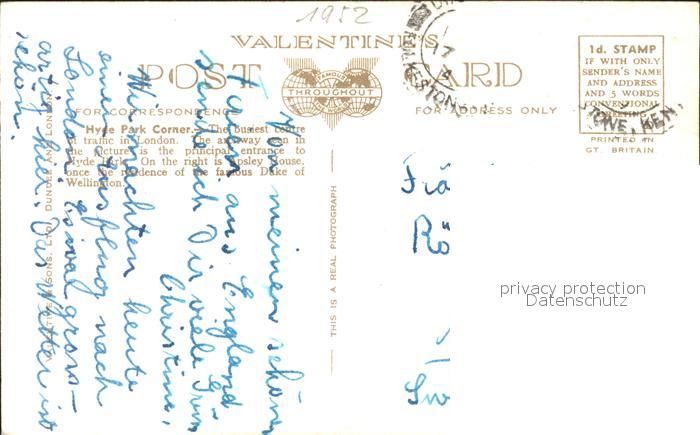 1952
VALENTINE'S
POST CARD
FAMOUS
THROUGHOUT
FOR CORRESPONDENCE
FOR ADDRESS ONLY
1d. STAMP
IF WITH ONLY
SENDER'S NAME
AND ADDRESS
AND 5 WORDS
CONVENTIONAL
GREETING
PRINTED IN
GT BRITAIN
Hyde Park Corner.—The busiest centre
of traffic in London. The archway seen in
the picture is the principal entrance to
Hyde Park. On the right is Apsley House,
once the residence of the famous Duke of
Wellington.
VALENTINE & SONS, LTD., DUNDEE AND LONDON
THIS IS A REAL PHOTOGRAPH
Von meinen schönen
Ferien aus England
sende ich Dir viele
Christine.
Wir machten heute
einen Ausflug nach
London. Es war gross-
artig hier. Das Wetter ist
schön.
Frä
Rö
privacy protection
Datenschutz